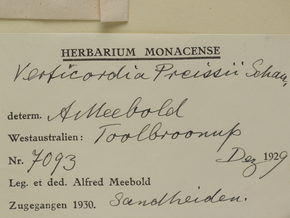 HERBARIUM MONACENSE
Verticordia Preissii Schau.
determ. AMeebold
Westaustralien: Toolbroonup
Nr. 7093 Dez 1929
Leg. et ded. Alfred Meebold
Zugegangen 1930. Sandheiden.